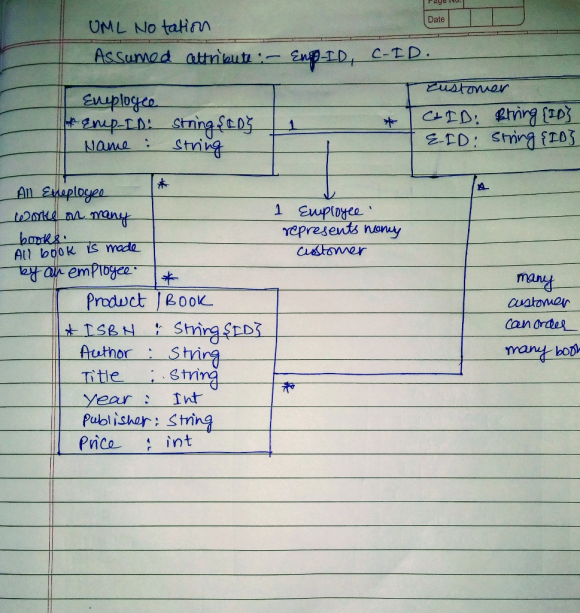 Page No.
Date
UML Notation
Assumed attribute :- Emp-ID, C-ID.
Employee
* Emp-ID: String {ID}
Name : String
1
*
Customer
C-ID: String {ID}
E-ID: String {ID}
*
*
All Employee
works on many
books.
All book is made
by an employee.
1 Employee
represents many
customer
*
many
customer
can order
many book
Product / BOOK
* ISBN : String {ID}
Author : String
Title : String
Year : Int
Publisher : String
Price : int
*